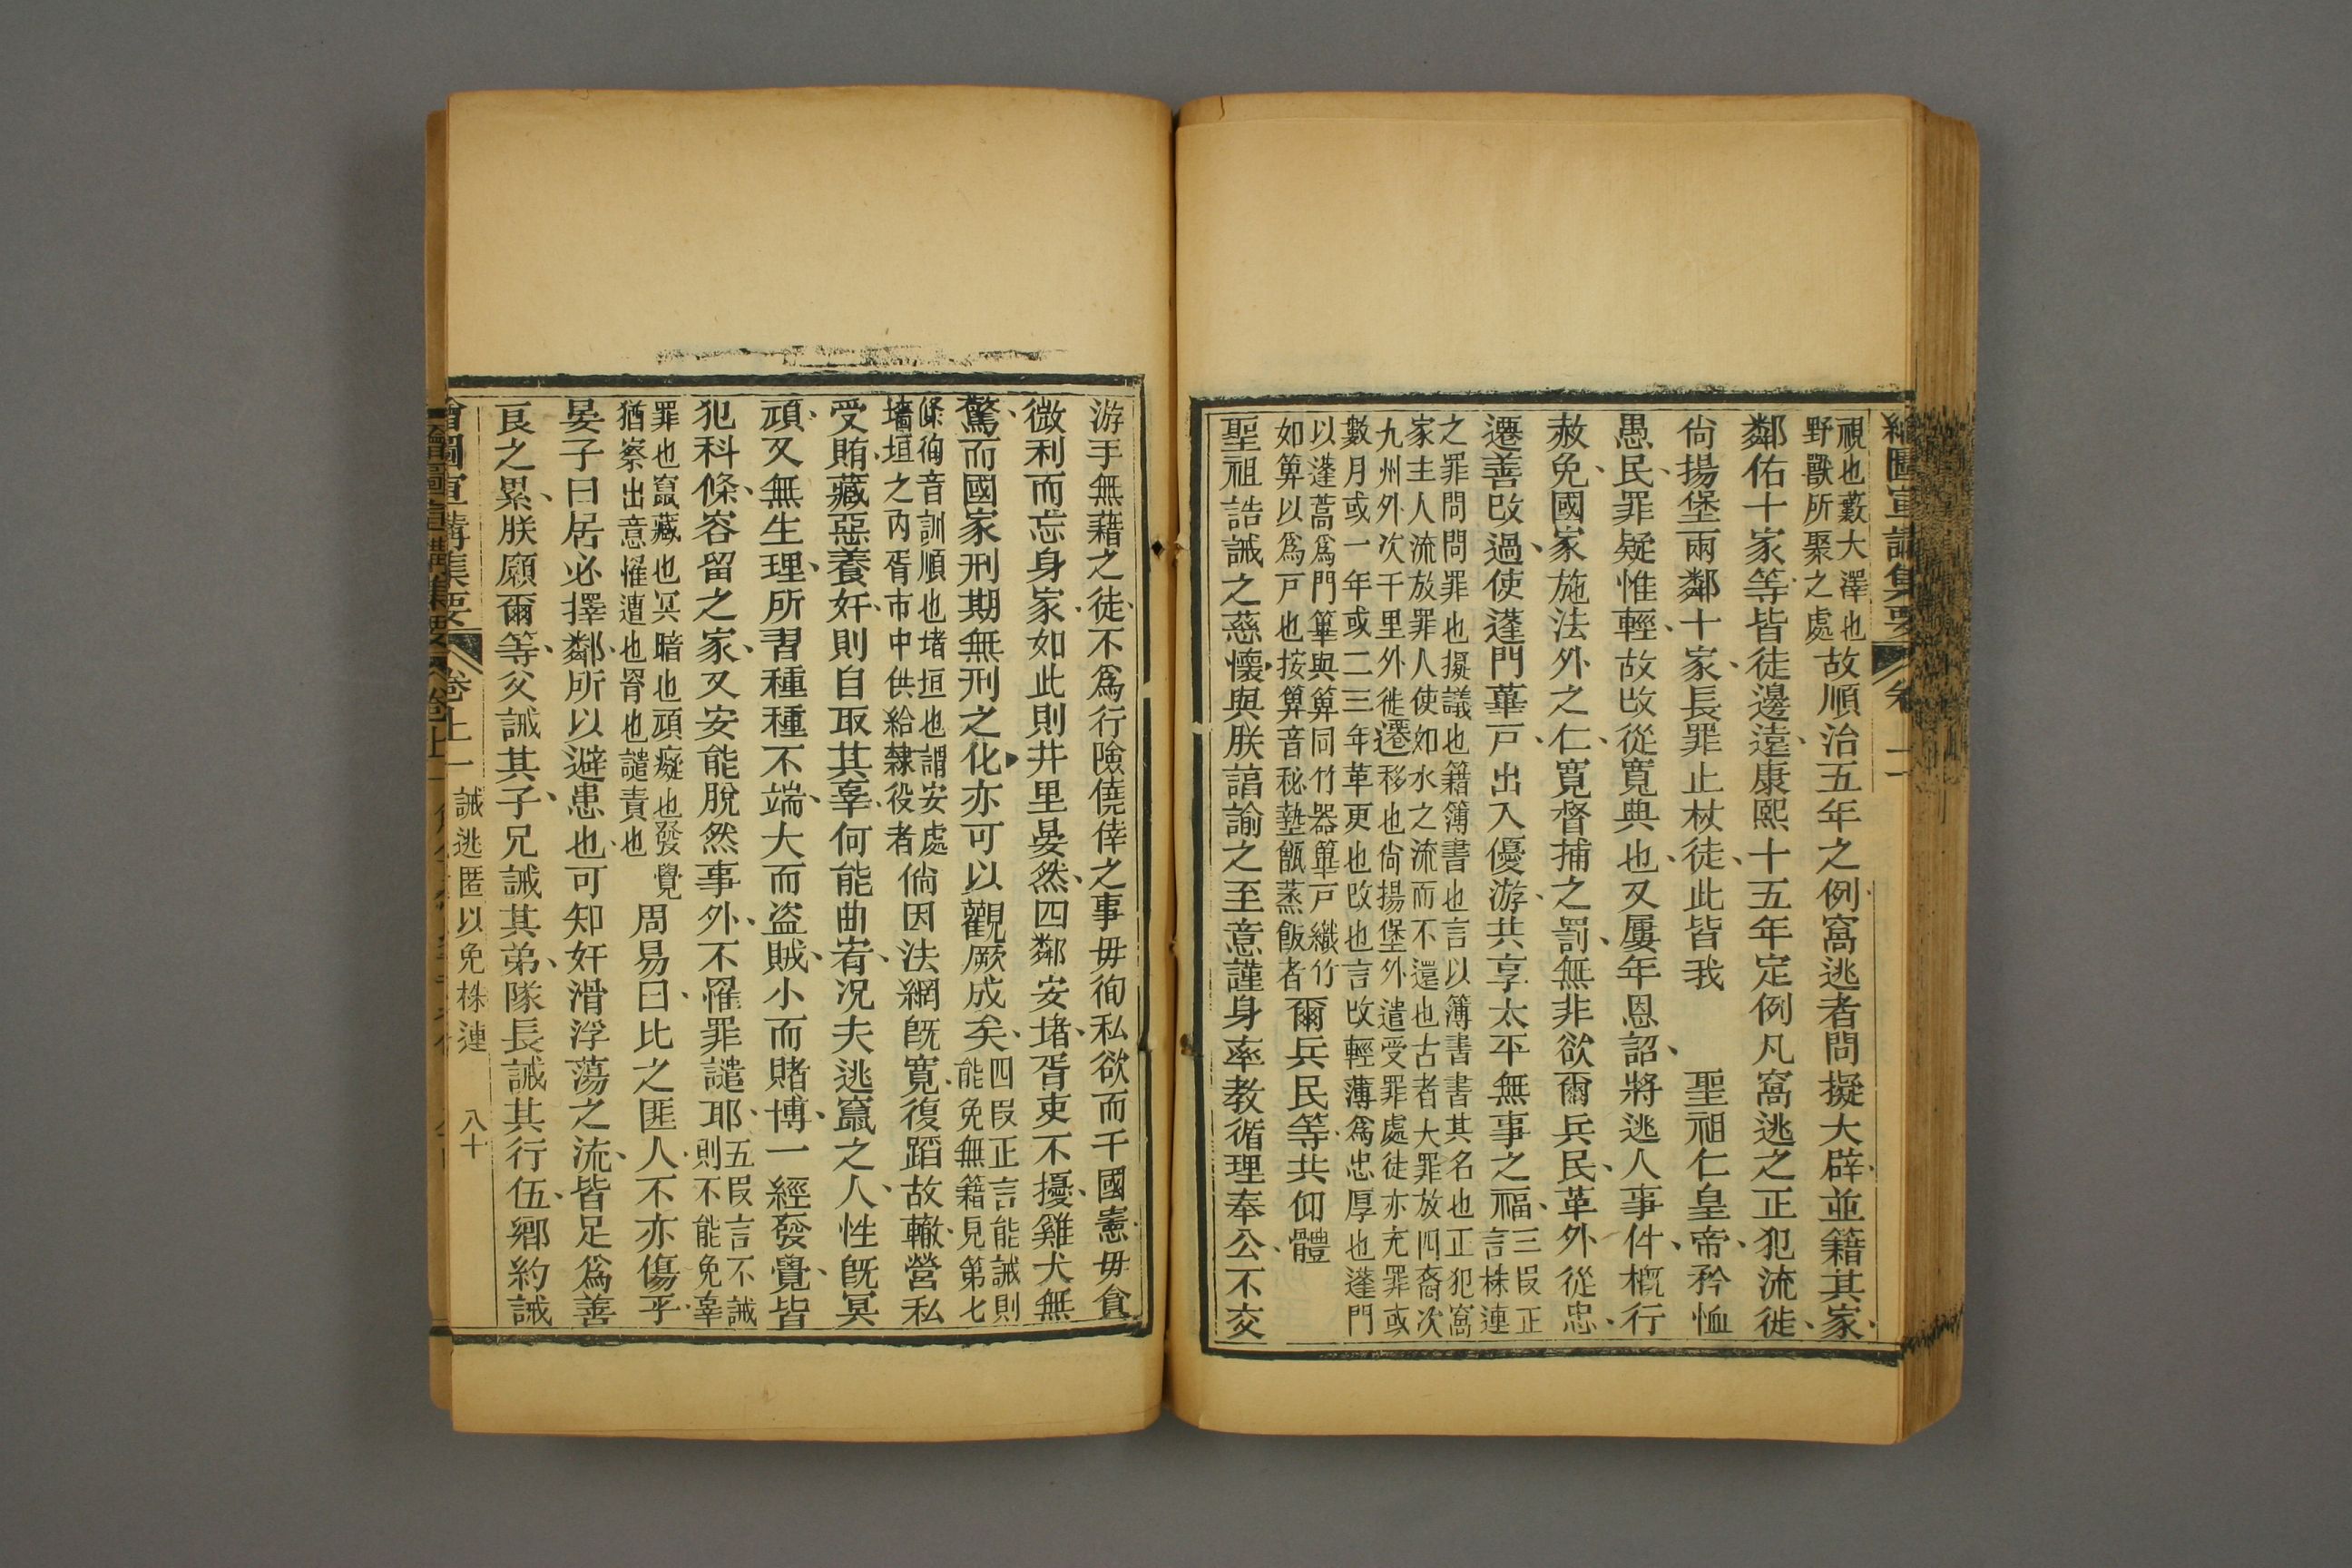 視也藪大澤也
野獸所聚之處
故順治五年之例窩逃者問擬大辟並籍其家
鄰佑十家等皆徒邊遠康熙十五年定例凡窩逃之正犯流徙
尙揚堡兩鄰十家長罪止杖徒此皆我
聖祖仁皇帝矜恤
愚民罪疑惟輕故改從寬典也又屢年恩詔將逃人事件槪行
赦免國家施法外之仁寬督捕之罰無非欲爾兵民革外從忠
遷善改過使蓬門蓽戶出入優游共享太平無事之福
三叚正
言株連
之罪問問罪也擬議也籍簿書也言以簿書書其名也正犯窩
家主人流放罪人使如水之流而不還也古者大罪放四裔次
九州外次千里外徙遷移也尙揚堡外遣受罪處徒亦充罪或
數月或一年或二三年革更也改也言改輕薄爲忠厚也蓬門
以蓬蒿爲門篳與箄同竹器篳戶織竹
如箄以爲戶也按箄音秘墊甑蒸飯者
爾兵民等共仰體
聖祖誥誡之慈懷與朕諳諭之至意謹身率教循理奉公不交
游手無藉之徒不爲行險僥倖之事毋徇私欲而干國憲毋貪
微利而忘身家如此則井里晏然四鄰安堵胥吏不擾雞犬無
驚而國家刑期無刑之化亦可以觀厥成矣
四叚正言能誡則
能免無籍見第七
條徇音訓順也堵垣也謂安處
墻垣之內胥市中供給隸役者
倘因法網旣寬復蹈故轍營私
受賄藏惡養奸則自取其辜何能曲宥况夫逃竄之人性旣冥
頑又無生理所習種種不端大而盜賊小而賭博一經發覺皆
犯科條容留之家又安能脫然事外不罹罪譴耶
五叚言不誡
則不能免辜
罪也竄藏也冥暗也頑癡也發覺
猶察出意罹遭也罥也譴責也
周易曰比之匪人不亦傷乎
晏子曰居必擇鄰所以避患也可知奸滑浮蕩之流皆足爲善
良之累朕願爾等父誡其子兄誡其弟隊長誡其行伍鄉約誡
繪圖宣講集要 卷上一 誡逃匿以免株連 八十